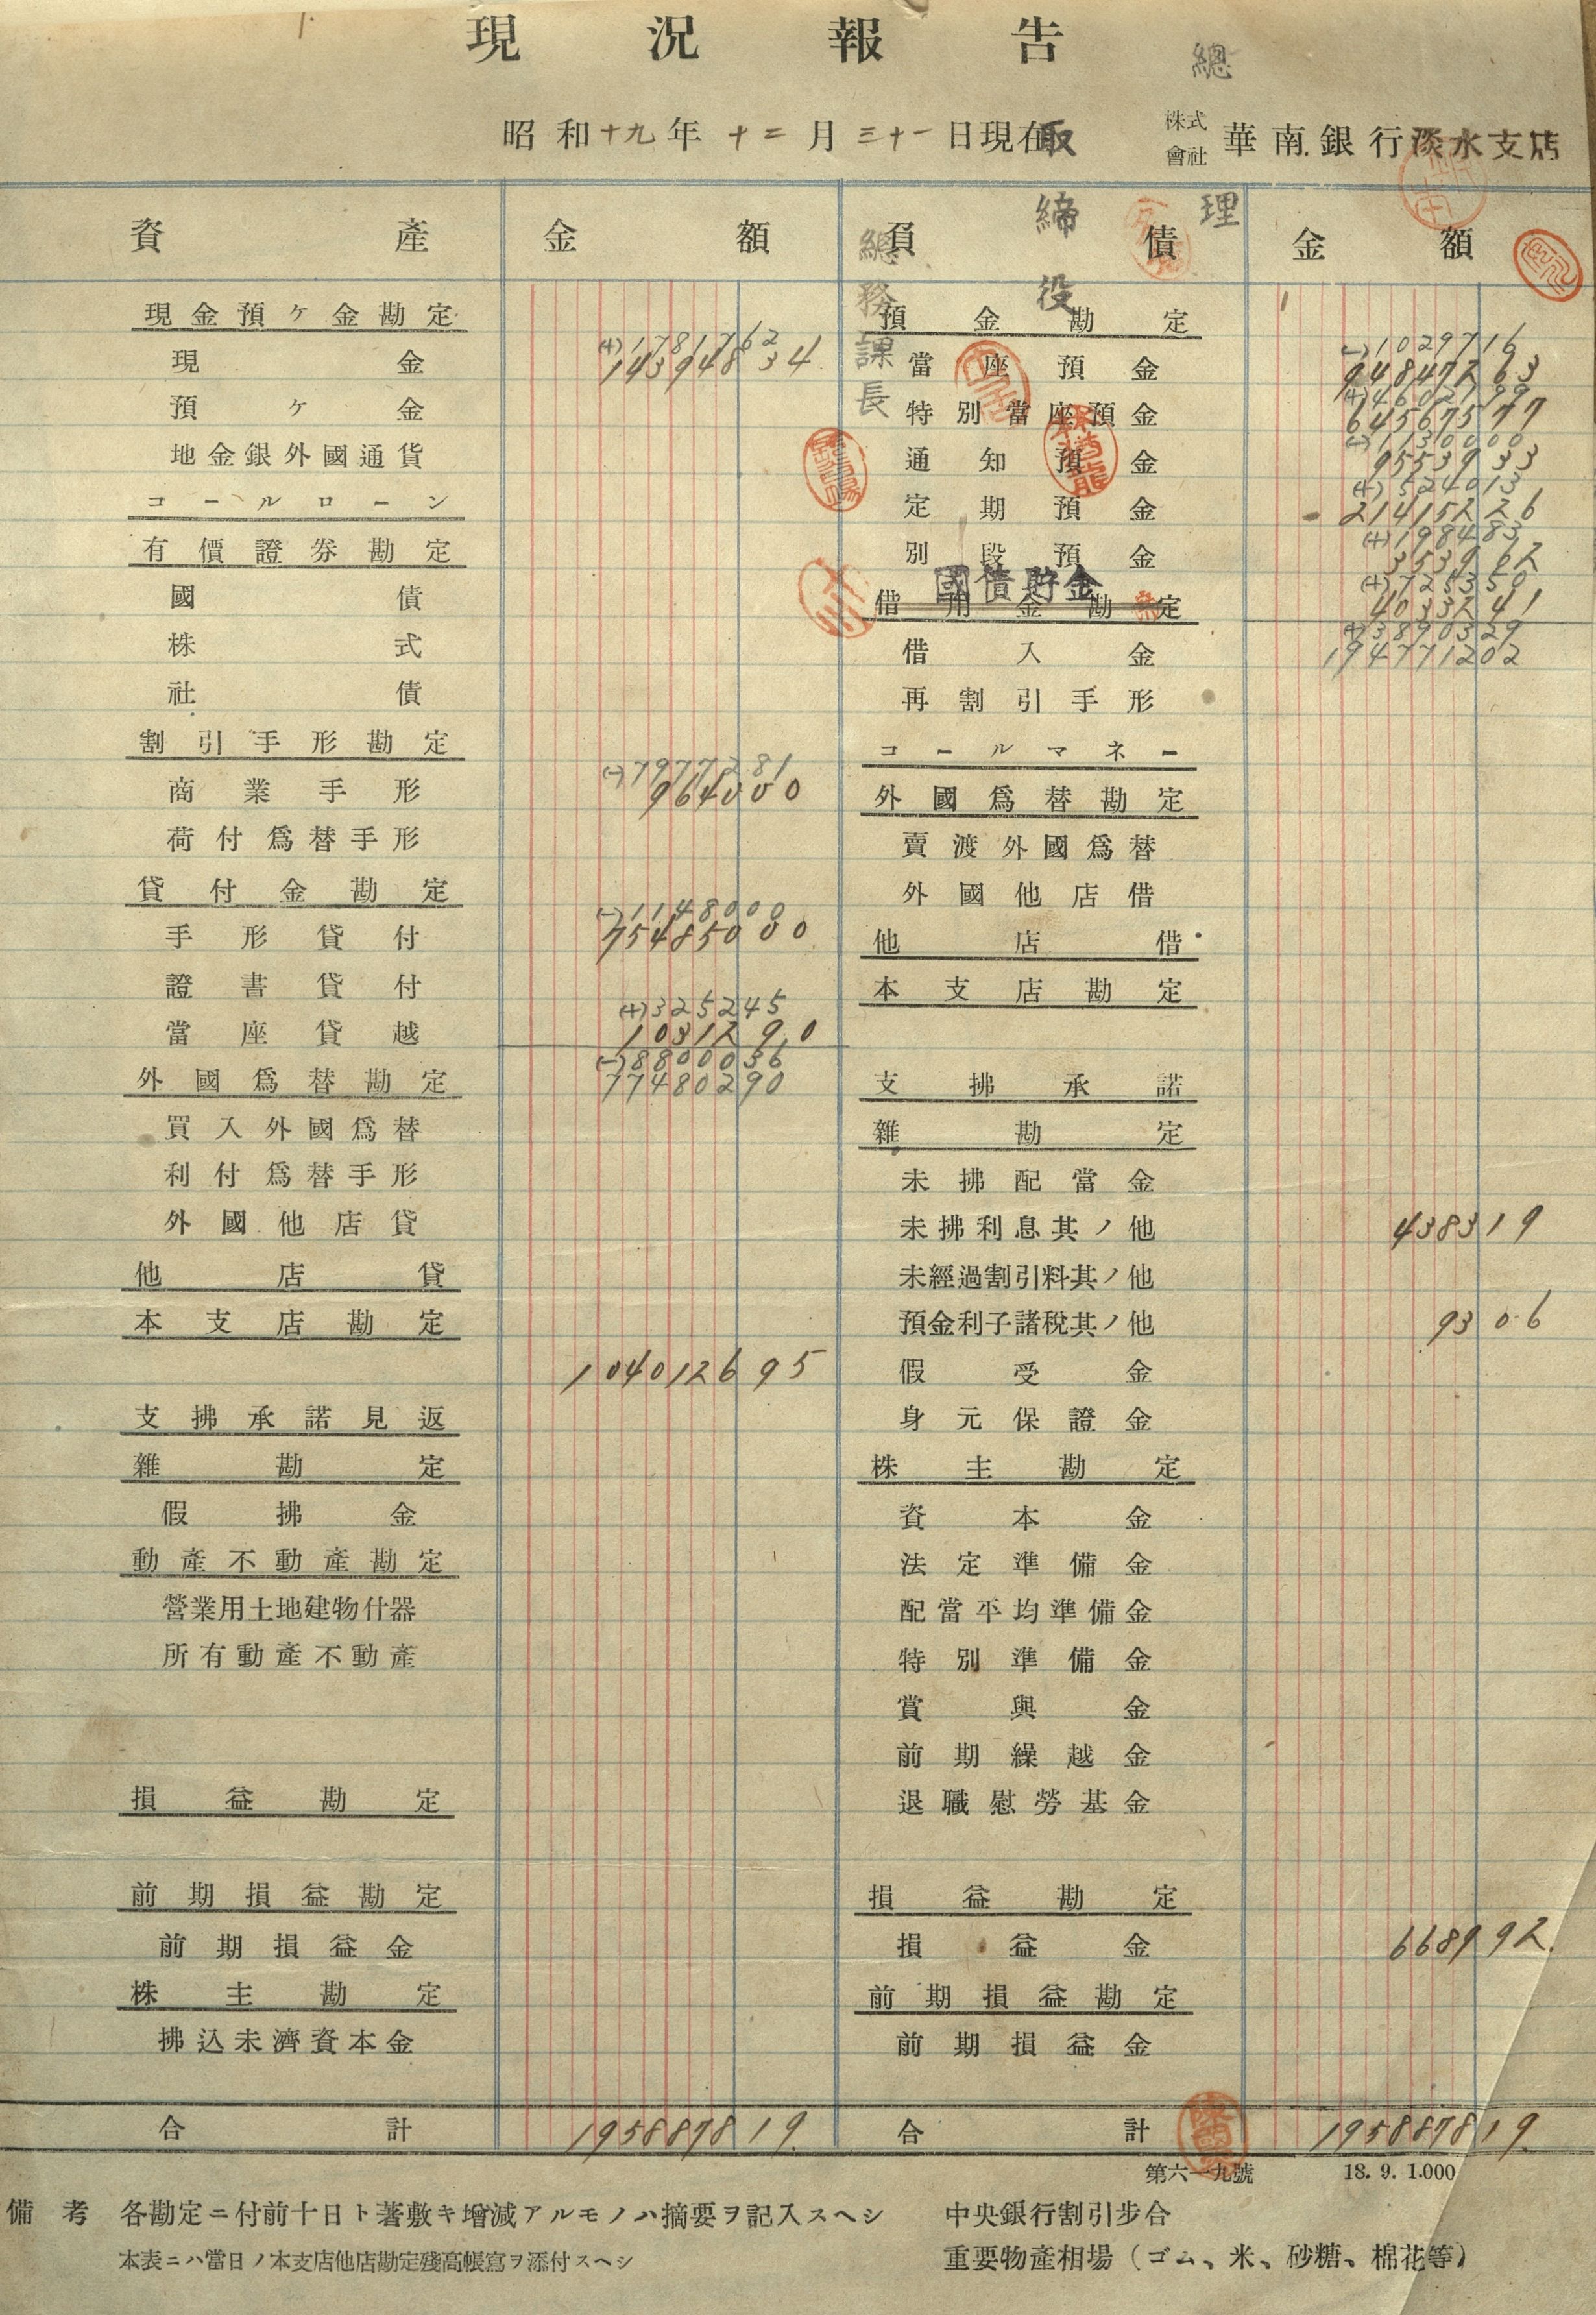 現況報告
總
昭和十九年十二月三十一日現在
取締役
株式會社 華南銀行淡水支店
理
總務課長
資產 金額 負債 金額
現金預ケ金勘定
現金 (+)1781762 14394834
預ケ金
地金銀外國通貨
コールローン
有價證券勘定
國債
株式
社債
割引手形勘定
商業手形 (-)7977281 964000
荷付爲替手形
貸付金勘定
手形貸付 (-)1148000 75485000
證書貸付
當座貸越 (+)325245 1031290
(-)8800036
77480290
外國爲替勘定
買入外國爲替
利付爲替手形
外國他店貸
他店貸
本支店勘定
104012695
支拂承諾見返
雜勘定
假拂金
動產不動產勘定
營業用土地建物什器
所有動產不動產
損益勘定
前期損益勘定
前期損益金
株主勘定
拂込未濟資本金
合計 195887819
預金勘定
當座預金 (-)1029716 94847263
特別當座預金 (+)4602199 64567577
通知預金 (-)1130000 9553933
定期預金 (+)524013 21415226
別段預金 (+)198483 353962
國債貯金 (+)725350 4033241
借用金勘定
(+)3890329
194771202
借入金
再割引手形
コールマネー
外國爲替勘定
賣渡外國爲替
外國他店借
他店借
本支店勘定
支拂承諾
雜勘定
未拂配當金
未拂利息其ノ他 438319
未經過割引料其ノ他
預金利子諸稅其ノ他 9306
假受金
身元保證金
株主勘定
資本金
法定準備金
配當平均準備金
特別準備金
賞與金
前期繰越金
退職慰勞基金
損益勘定
損益金 668992
前期損益勘定
前期損益金
合計 195887819
第六一九號 18. 9. 1.000
備考 各勘定ニ付前十日ト著敷キ增減アルモノハ摘要ヲ記入スヘシ
本表ニハ當日ノ本支店他店勘定殘高帳寫ヲ添付スヘシ
中央銀行割引步合
重要物產相場（ゴム、米、砂糖、棉花等）